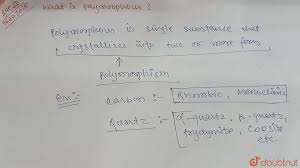 What is polymorphous ?
Polymorphous is single substance that
crystallizes into two or more form
Polymorphism
Ex:-
Carbon :- Rhombic, Monoclinic
Quartz :- α-quartz, β-quartz,
trydymite, Coesite
etc.
doubtnut